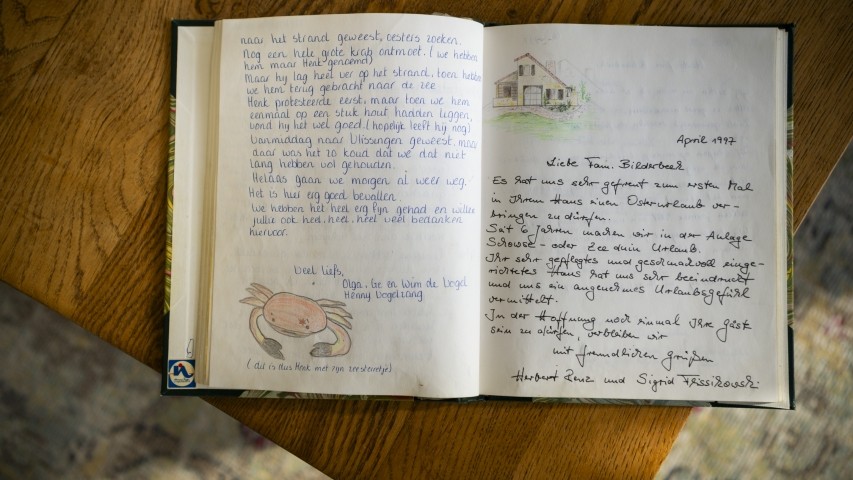 naar het strand geweest, oesters zoeken.
Nog een hele grote krab ontmoet. (we hebben
hem maar Henk genoemd)
Maar hij lag heel ver op het strand, toen hebben
we hem terug gebracht naar de zee.
Henk protesteerde eerst, maar toen we hem
eenmaal op een stuk hout hadden liggen,
vond hij het wel goed. (hopelijk leeft hij nog)
Vanmiddag naar Vlissingen geweest, maar
daar was het zo koud dat we dat niet
lang hebben vol gehouden.
Helaas gaan we morgen al weer weg.
Het is hier erg goed bevallen.
We hebben het heel erg fijn gehad en willen
jullie ook heel, heel, heel veel bedanken
hiervoor.
Veel liefs,
Olga, Ge en Wim de Vogel
Henny Vogelzang
(dit is dus Henk met zijn)
April 1997
Liebe Fam. Bilderbeek
Es hat uns sehr gefreut zum ersten Mal
in Ihrem Haus einen Osterurlaub ver-
bringen zu dürfen.
Seit 6 Jahren machen wir in der Anlage
oder Zee duin Urlaub.
Ihr sehr gepflegtes und geschmackvoll einge-
richtetes Haus hat uns sehr beeindruckt
und uns ein angenehmes Urlaubsgefühl
vermittelt.
In der Hoffnung noch einmal Ihre Gäste
sein zu dürfen, verbleiben wir
mit freundlichen Grüßen
Herbert und Sigrid